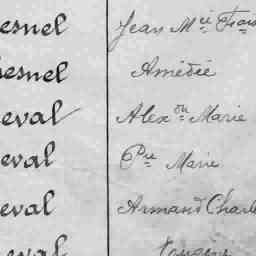 esnel Jean M.ie Frois
esnel Amédée
eval Alex.on Marie
eval P.re Marie
eval Armand Charle
eval Eugène